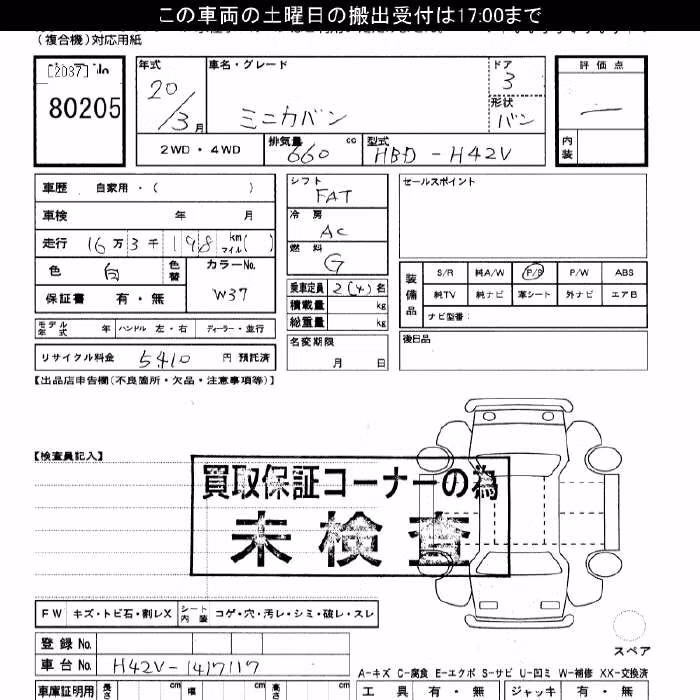 この車両の土曜日の搬出受付は17:00まで
(複合機)対応用紙
[2037] No
80205
年式 20/3月
車名・グレード
ミニカバン
ドア 3
形状 バン
評価点
内装
2WD・4WD
排気量 660 cc
型式 HBD-H42V
車歴 自家用・( )
車検 年 月
走行 16万3千198 km マイル( )
色 白 色替
カラーNo. W37
保証書 有・無
モデル年式 年 ハンドル 左・右 ディーラー・並行
リサイクル料金 5410 円 預託済
シフト FAT
冷房 AC
燃料 G
乗車定員 2(4)名
積載量 kg
総重量 kg
名変期限
月 日
セールスポイント
装備品
S/R 純A/W P/S P/W ABS
純TV 純ナビ 革シート 外ナビ エアB
ナビ型番:
後日品
【出品店申告欄(不良箇所・欠品・注意事項等)】
【検査員記入】
買取保証コーナーの為
未検査
FW キズ・トビ石・割レX シート内装 コゲ・穴・汚レ・シミ・破レ・スレ
登録No.
車台No. H42V-1417117
スペア
A-キズ C-腐食 E-エクボ S-サビ U-凹ミ W-補修 XX-交換済
車庫証明用 長さ cm 幅 cm 高さ cm
工具 有・無 ジャッキ 有・無